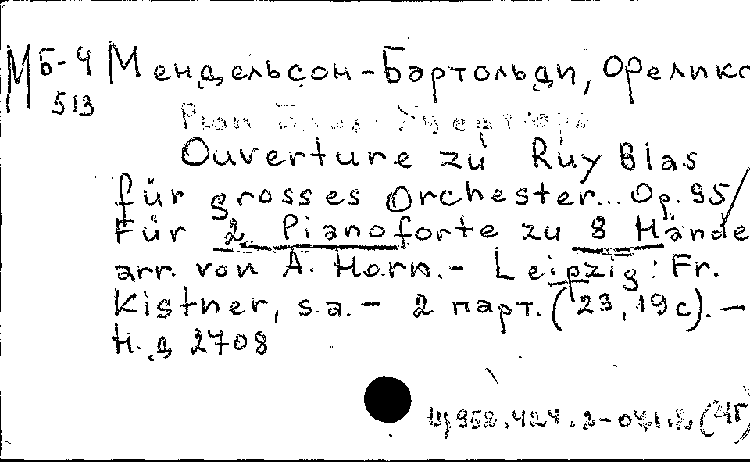 МБ-4 Мендельсон-Бартольди, Феликс
513
Рюи Блаз. Увертюра
Ouverture zu Ruy Blas
für grosses Orchester... Op. 95/
Für 2 Pianoforte zu 8 Hände
arr. von A. Horn.- Leipzig: Fr.
Kistner, s.a.- 2 парт. (23, 19 с).-
Н.д 2708
Щ952.424.2-041.2 (4Г)